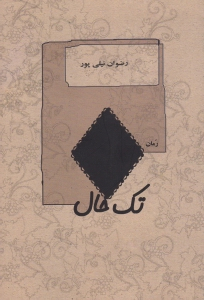 رضوان نیلی پور
رمان
تک خال